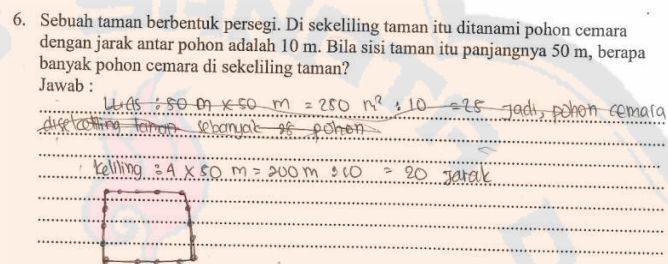 6. Sebuah taman berbentuk persegi. Di sekeliling taman itu ditanami pohon cemara
dengan jarak antar pohon adalah 10 m. Bila sisi taman itu panjangnya 50 m, berapa
banyak pohon cemara di sekeliling taman?
Jawab :
Luas : 50 m x 50 m = 250 m² : 10 = 25 jadi, pohon cemara
disekeliling taman sebanyak 25 pohon
Keliling : 4 x 50 m = 200 m : 10 = 20 jarak